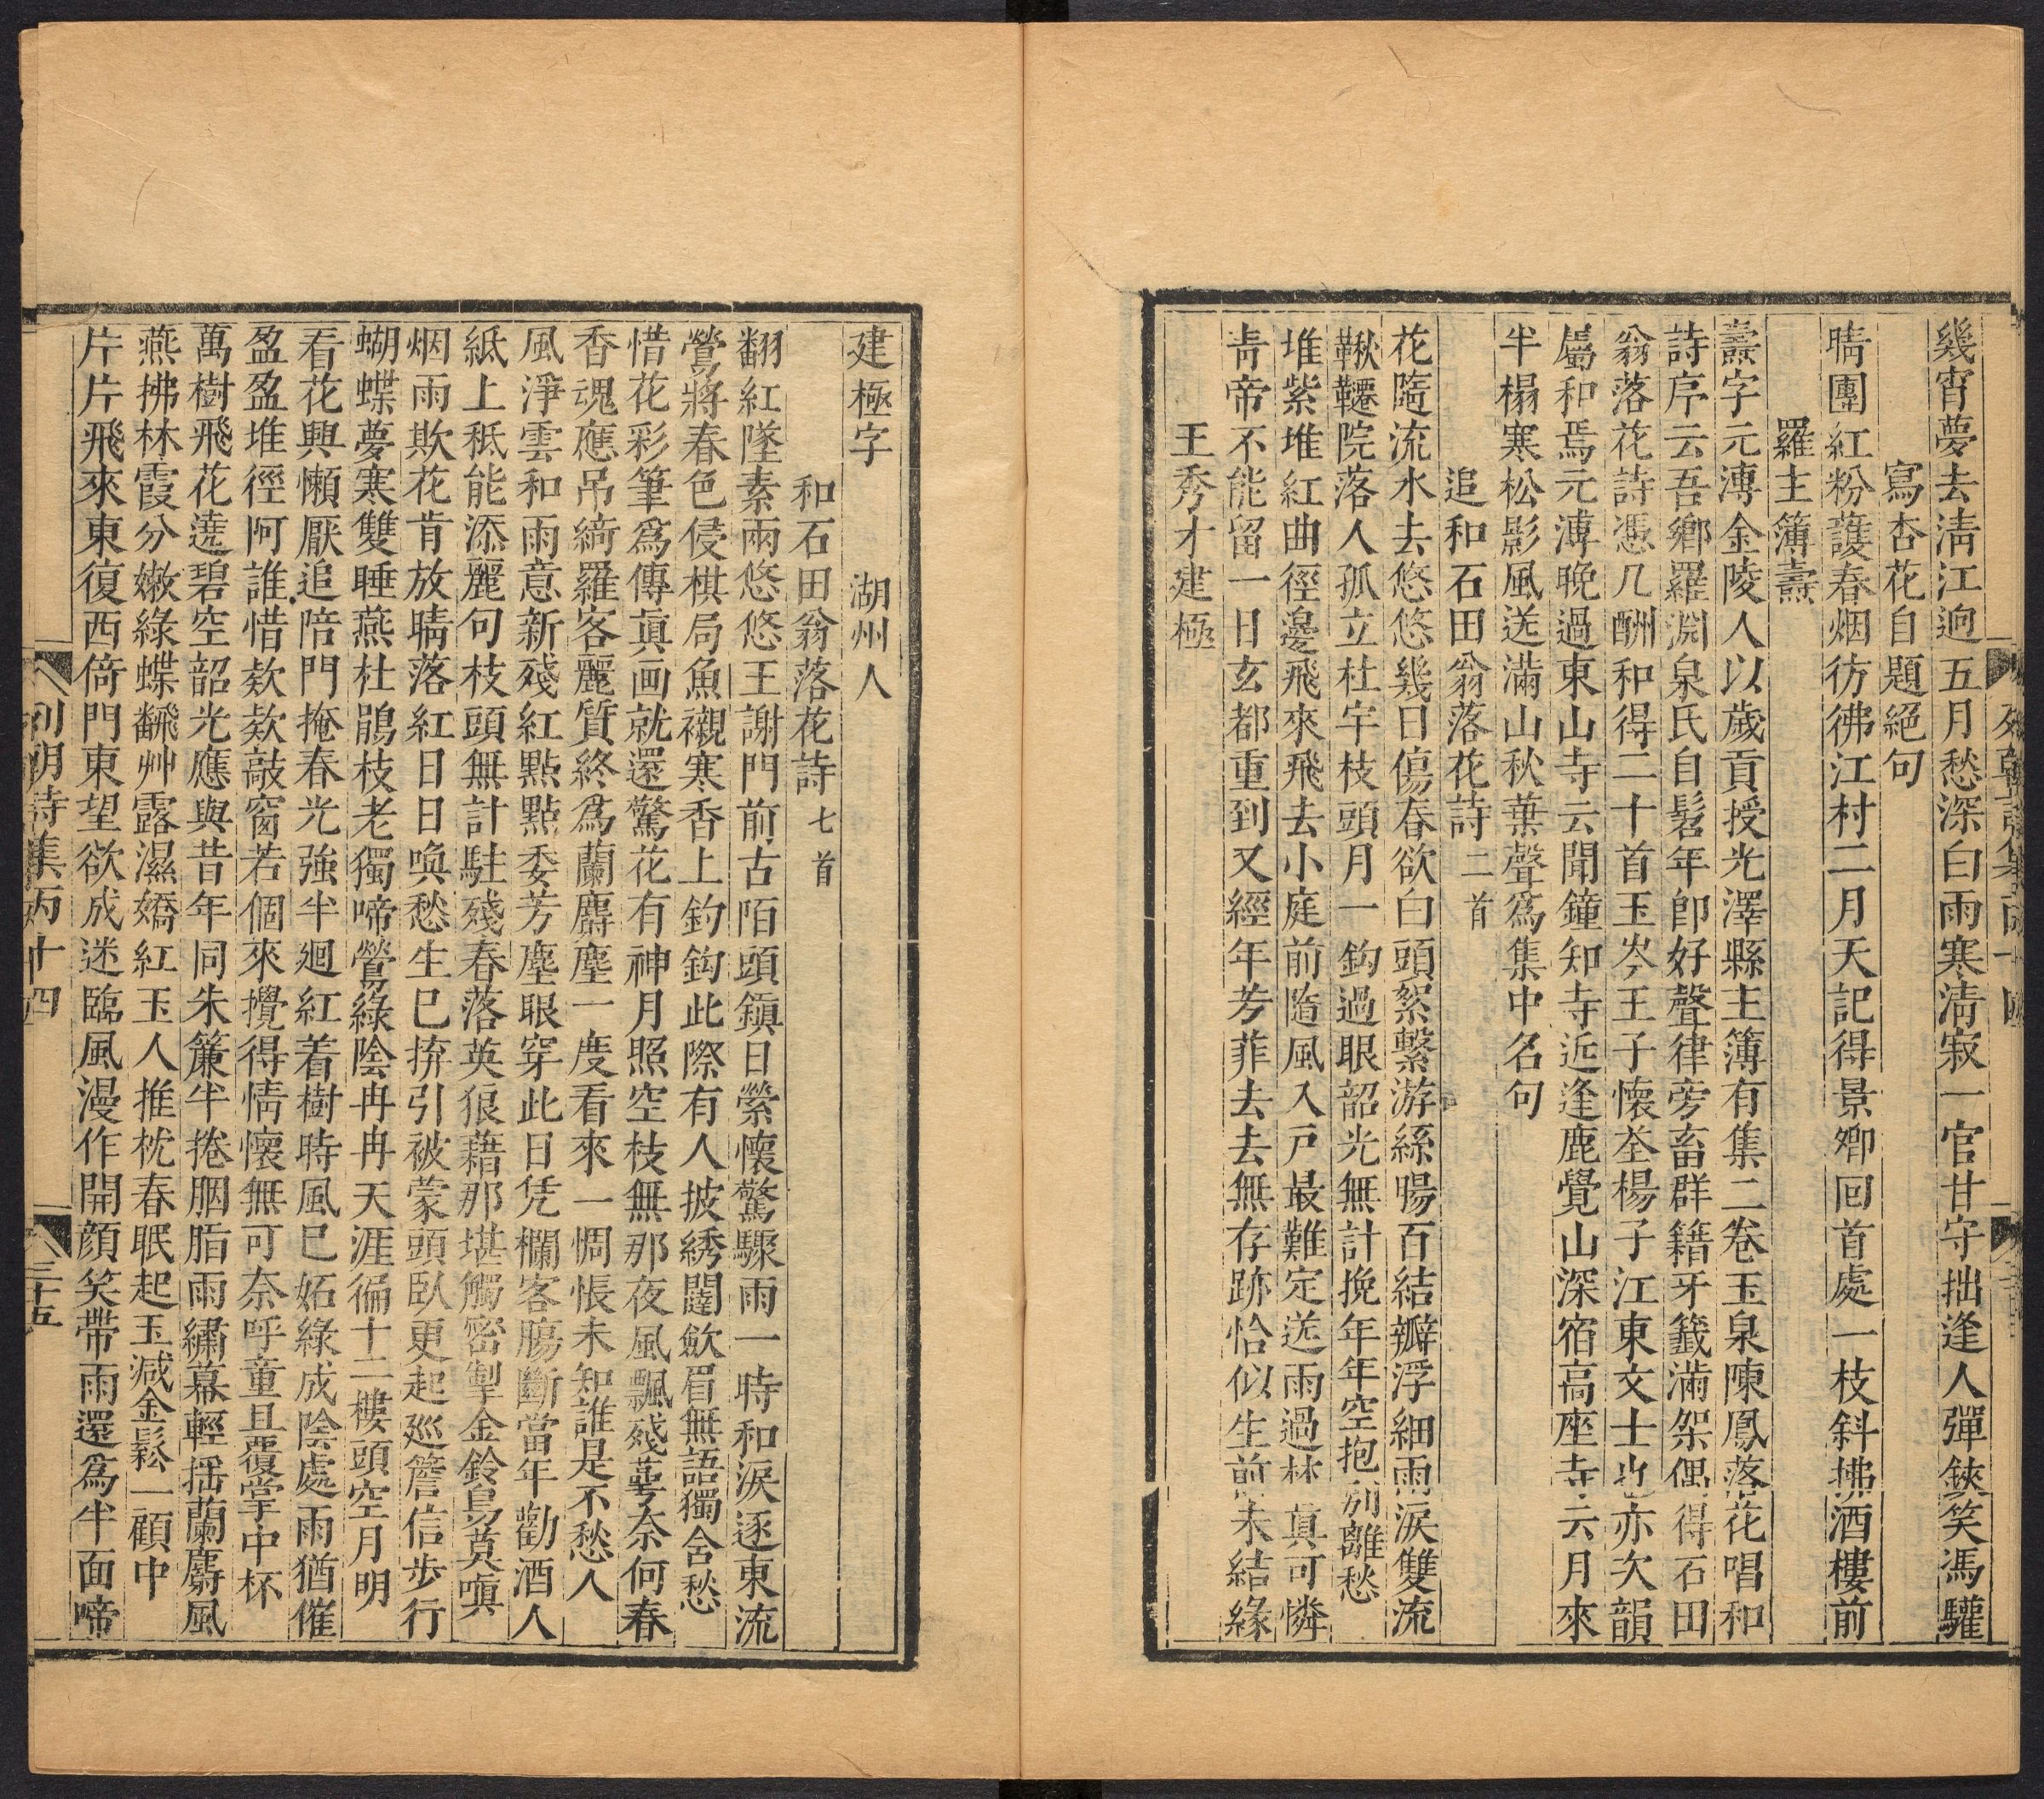 幾宵夢去清江迥五月愁深白雨寒清寂一官甘守拙逢人彈鋏笑馮驩
寫杏花自題絕句
晴團紅粉護春烟彷彿江村二月天記得景卿回首處一枝斜拂酒樓前
羅主簿燾
燾字元溥金陵人以歲貢授光澤縣主簿有集二卷玉泉陳鳳落花唱和
詩序云吾鄉羅淵泉氏自髫年卽好聲律旁畜群籍牙籤滿架偶得石田
翁落花詩憑几酬和得二十首玉岑王子懷荃楊子江東文士也亦次韻
屬和焉元溥晚過東山寺云聞鐘知寺近逢鹿覺山深宿高座寺云月來
半榻寒松影風送滿山秋葉聲爲集中名句
追和石田翁落花詩二首
花隨流水去悠悠幾日傷春欲白頭絮繫游絲暘百結瓣浮細雨淚雙流
鞦韆院落人孤立杜宇枝頭月一鈎過眼韶光無計挽年年空抱別離愁
堆紫堆紅曲徑邊飛來飛去小庭前隨風入戸最難定送雨過林真可憐
靑帝不能留一日玄都重到又經年芳菲去去無存跡恰似生前未結緣
王秀才建極
建極字　湖州人
和石田翁落花詩七首
翻紅墜素兩悠悠王謝門前古陌頭鎭日縈懷驚驟雨一時和淚逐東流
鶯將春色侵棋局魚襯寒香上釣鈎此際有人披綉闥歛眉無語獨含愁
惜花彩筆爲傳眞画就還驚花有神月照空枝無那夜風飄殘萼奈何春
香魂應吊綺羅客麗質終爲蘭麝塵一度看來一惆悵未知誰是不愁人
風淨雲和雨意新殘紅點點委芳塵眼穿此日凭欄客腸斷當年勸酒人
紙上秪能添麗句枝頭無計駐殘春落英狼藉那堪觸密掣金鈴鳥莫嗔
烟雨欺花肯放晴落紅日日喚愁生巳拚引被蒙頭臥更起巡簷信步行
蝴蝶夢寒雙睡燕杜鵑枝老獨啼鶯綠陰冉冉天涯徧十二樓頭空月明
看花興懶厭追陪門掩春光強半廻紅着樹時風巳妬綠成陰處雨猶催
盈盈堆徑阿誰惜欵欵敲窗若個來攪得情懷無可奈呼童且覆掌中杯
萬樹飛花遶碧空韶光應與昔年同朱簾半捲胭脂雨繡幕輕揺蘭麝風
燕拂林霞分嫩綠蝶翻艸露濕嬌紅玉人推枕春眠起玉減金鬆一顧中
片片飛來東復西倚門東望欲成迷臨風漫作開顔笑帶雨還爲半面啼
列朝詩集丙十四
三十五